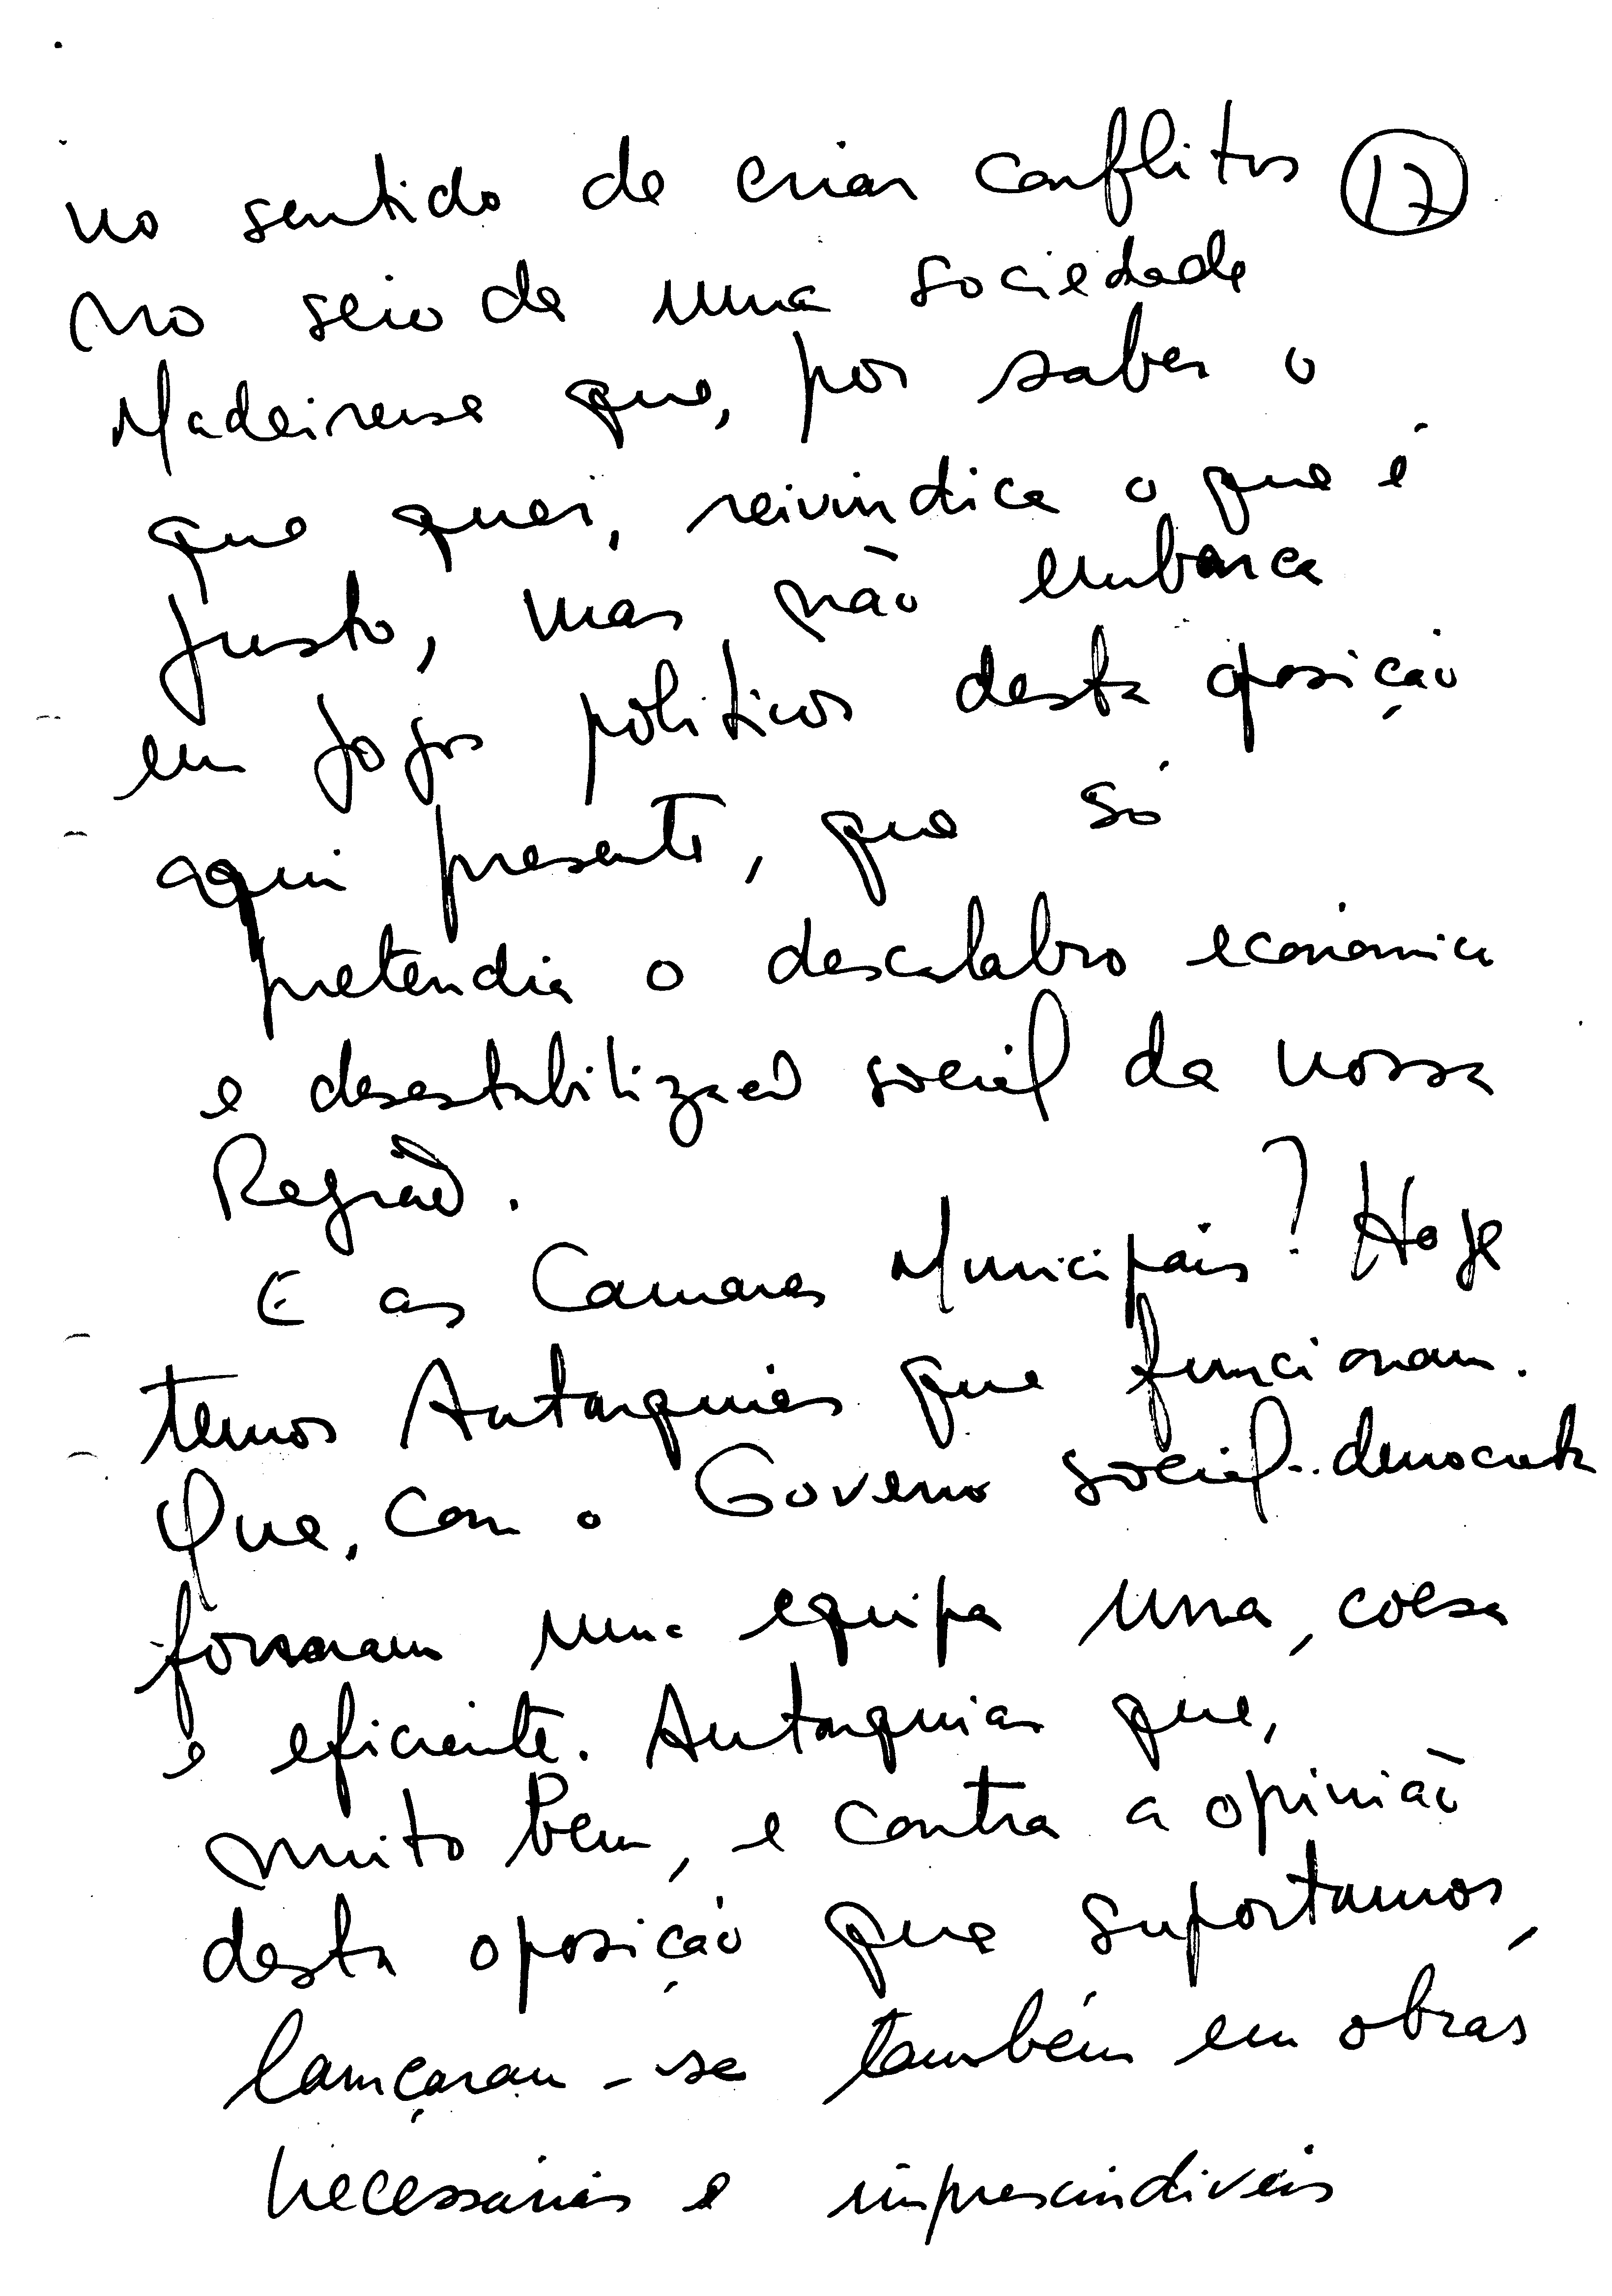 no sentido de criar conflitos 17
no seio de uma sociedade
Madeirense que, por saber o
que quer, reivindica o que é
justo, mas não embarca
em jogos politicos desta oposição
aqui presente, que só
pretendia o descalabro economico
e desestabilização social da nossa
Região.
E as Camaras Municipais? Hoje
temos Autarquias que funcionam.
Que, com o Governo social-democrata
formam uma equipa una, coesa
e eficiente. Autarquias que,
muito bem, e contra a opinião
desta oposição que suportamos,
lançaram-se também em obras
necessárias e imprescindiveis